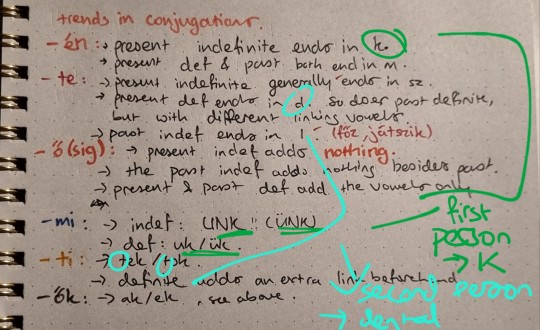 trends in conjugations.
-én: → present indefinite ends in k.
→ present def & past both end in m.
-te: → present indefinite generally ends in sz.
→ present def ends in d. so does past definite,
but with different linking vowels
→ past indef ends in l. (főz, játszik)
-ő(sig): → present indef adds nothing.
→ the past indef adds nothing besides past.
→ present & past def add the vowels only
-mi → indef: UNK!! (ÜNK)
→ def: uk/ük.
-ti: → tek/tok
→ definite adds an extra link beforehand
-ők: → ak/ek, see above.
first
person
→ K
second person
→ dental